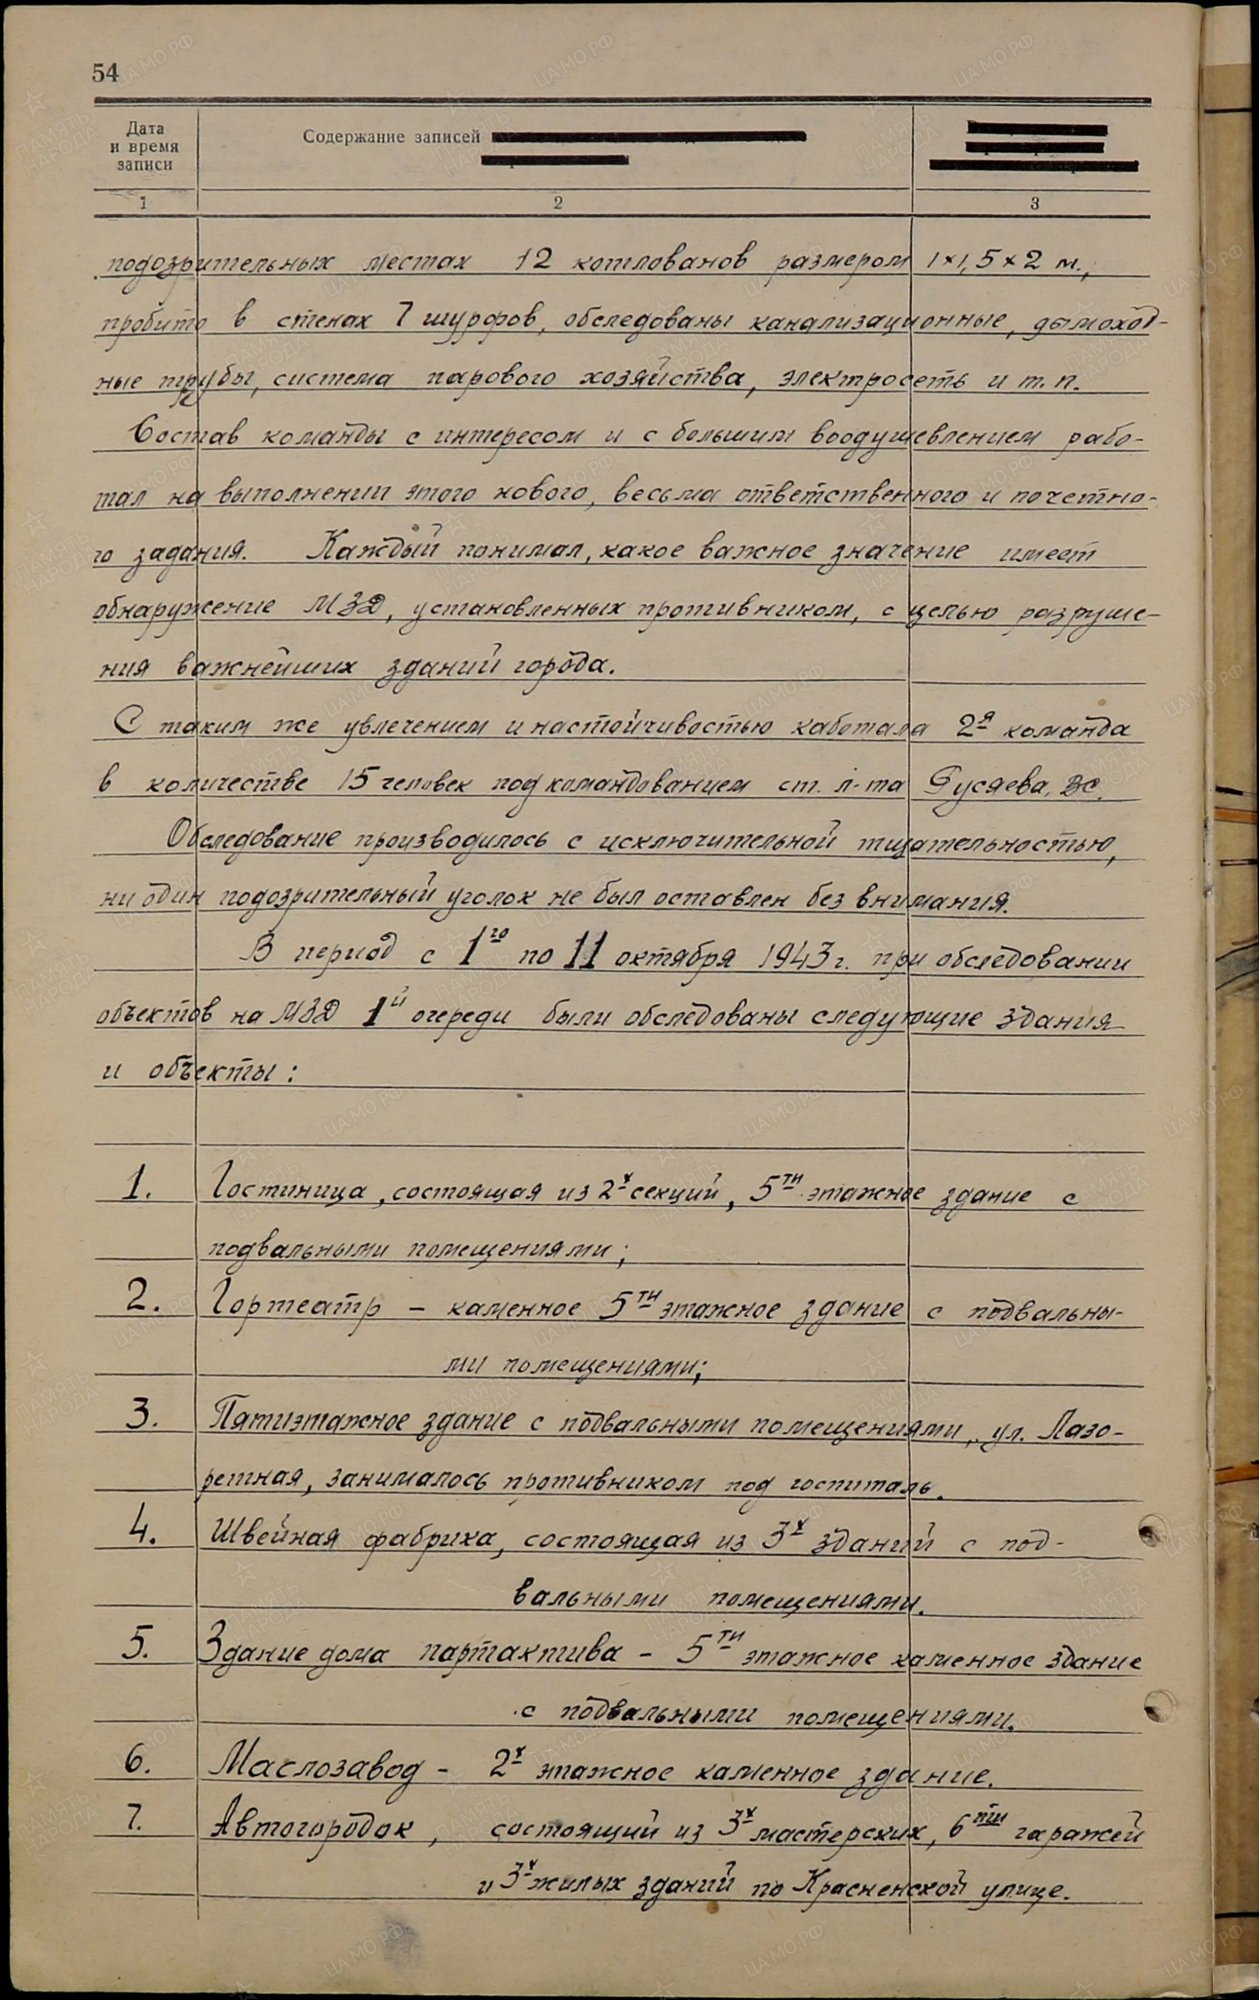 54
Дата
и время
записи
Содержание записей
1 2 3
подозрительных местах 12 котлованов размером 1×1,5×2 м.,
пробито в стенах 7 шурфов, обследованы канализационные, дымоход-
ные трубы, система парового хозяйства, электросеть и т.п.
Состав команды с интересом и с большим воодушевлением рабо-
тал на выполнении этого нового, весьма ответственного и почетно-
го задания. Каждый понимал, какое важное значение имеет
обнаружение МЗД, установленных противником, с целью разруше-
ния важнейших зданий города.
С таким же увлечением и настойчивостью работала 2я команда
в количестве 15 человек под командованием ст. л-та Гусяева, ВС.
Обследование производилось с исключительной тщательностью,
ни один подозрительный уголок не был оставлен без внимания.
В период с 1го по 11 октября 1943 г. при обследовании
объектов на МЗД 1й очереди были обследованы следующие здания
и объекты:
1. Гостиница, состоящая из 2х секций, 5ти этажное здание с
подвальными помещениями;
2. Гортеатр – каменное 5ти этажное здание с подвальны-
ми помещениями;
3. Пятиэтажное здание с подвальными помещениями, ул. Лазо-
ретная, занималось противником под госпиталь.
4. Швейная фабрика, состоящая из 3х зданий с под-
вальными помещениями.
5. Здание дома партактива – 5ти этажное каменное здание
с подвальными помещениями.
6. Маслозавод – 2х этажное каменное здание.
7. Автогородок, состоящий из 3х мастерских, 6ти гаражей
и 3х жилых зданий по Красненской улице.